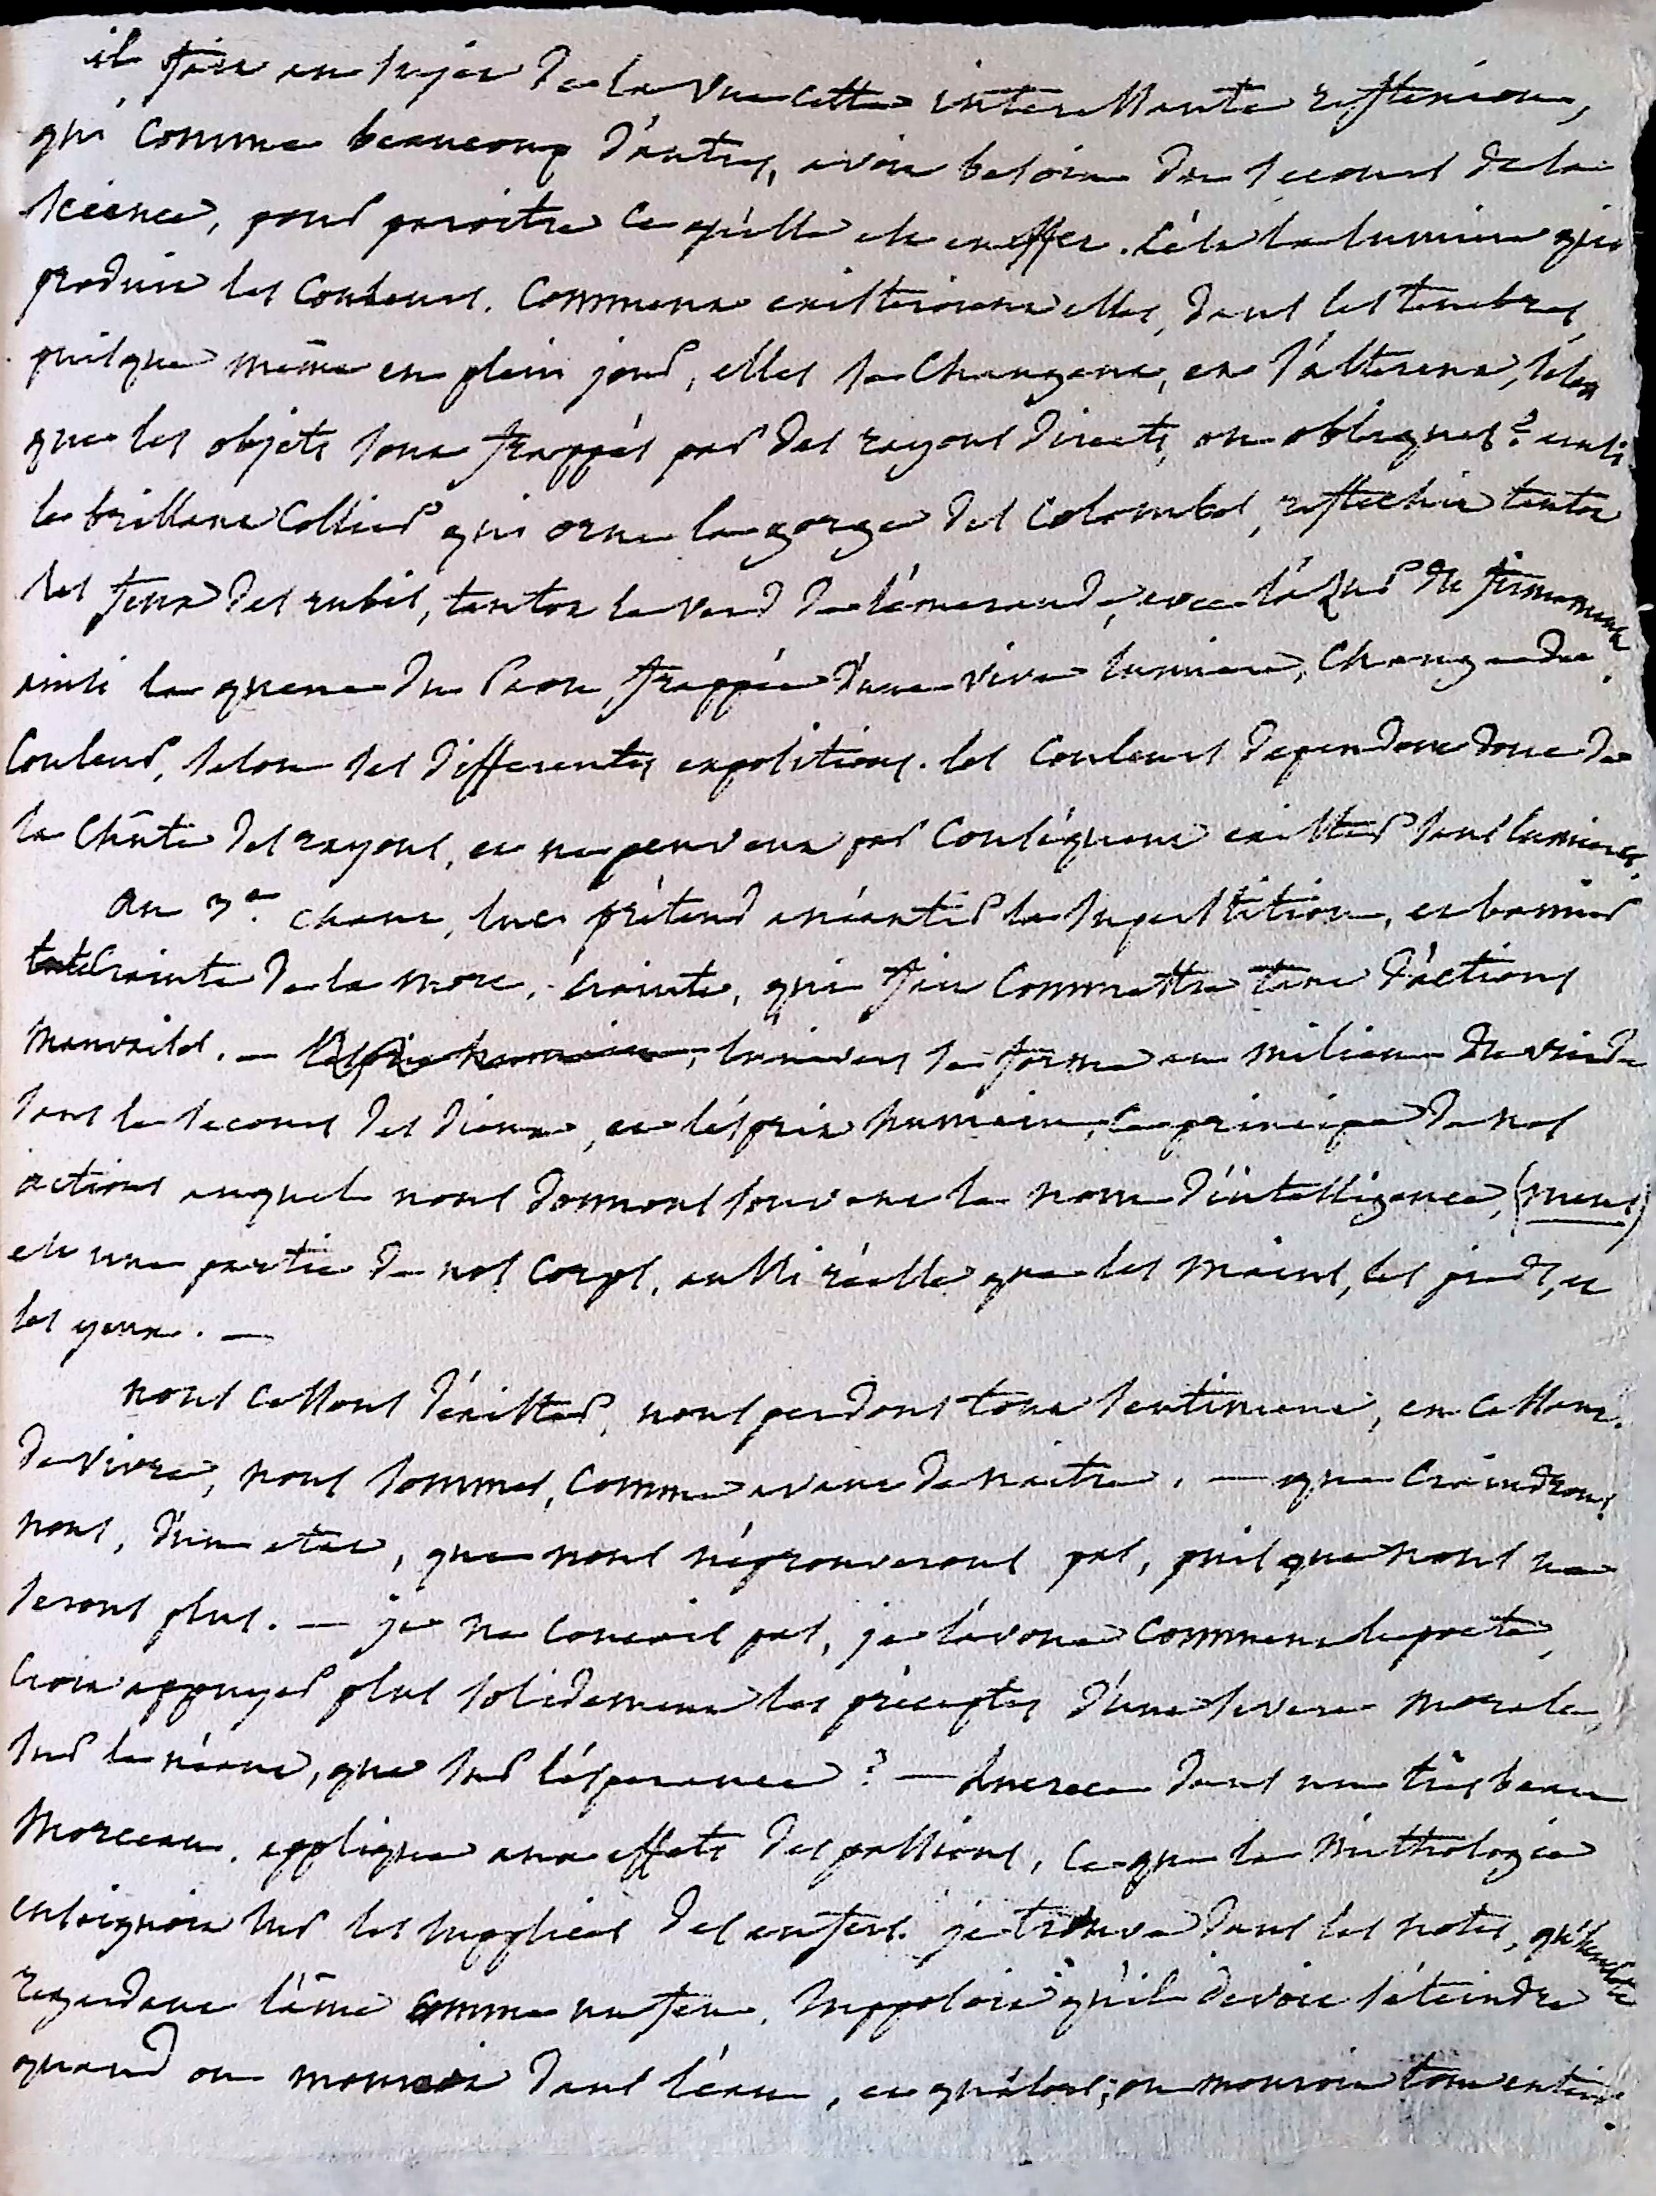 il fait au sujet de la vue cette interessante reflexion,
qui comme beaucoup d'autres, avoit besoin du secours de la
science, pour paroitre ce qu'elle est en effet. c'est la lumiere qui
produit les couleurs. comment existeroient elles, dans les tenebres,
puisque même en plein jour, elles se changent, et s'alterent, selon
que les objets sont frappés par des rayons directs, ou obliques ? ainsi
le brillant collier qui orne la gorge des colombes, reflechit tantot
les feux des rubis, tantot le verd de l'émeraude, avec l'azur du firmament
ainsi la queue du Paon frappée d'une vive lumiere, change de
couleur, selon ses differentes expositions. les couleurs dependent donc de
la chûte des rayons, et ne peuvent par conséquent exister sans lumiere.
au 3e. chant, luc prétend anéantir la superstition, et bannir
la crainte de la mort, crainte, qui fait commettre tant d'actions
mauvaises. — l'univers se forme au milieu du vuide
sans le secours des dieux, et l'esprit humain, ce principe de nos
actions auquel nous donnons souvent le nom d'intelligence, (mens)
est une partie de nos corps, aussi réelle que les mains, les pieds, et
les yeux. —
nous cessons d'exister, nous perdons tout sentiment, en cessant
de vivre, nous sommes, comme avant de naitre. — que craindrons
nous, d'un etat, que nous n'éprouverons pas, puisque nous ne
serons plus. — je ne conçois pas, je l'avoue comment le poete,
croit appuyer plus solidement les préceptes d'une severe morale,
sur le néant, que sur l'ésperance ? — Lucrece dans un très beau
morceau, applique aux effets des passions, ce que la mithologie
enseignoit sur les supplices des enfers. je trouve dans les notes, qu'heraclite
regardant l'âme comme un feu, supposoit qu'il devoit s'éteindre
quand on mouroit dans l'eau, et qu'alors, on mouroit tout entier.